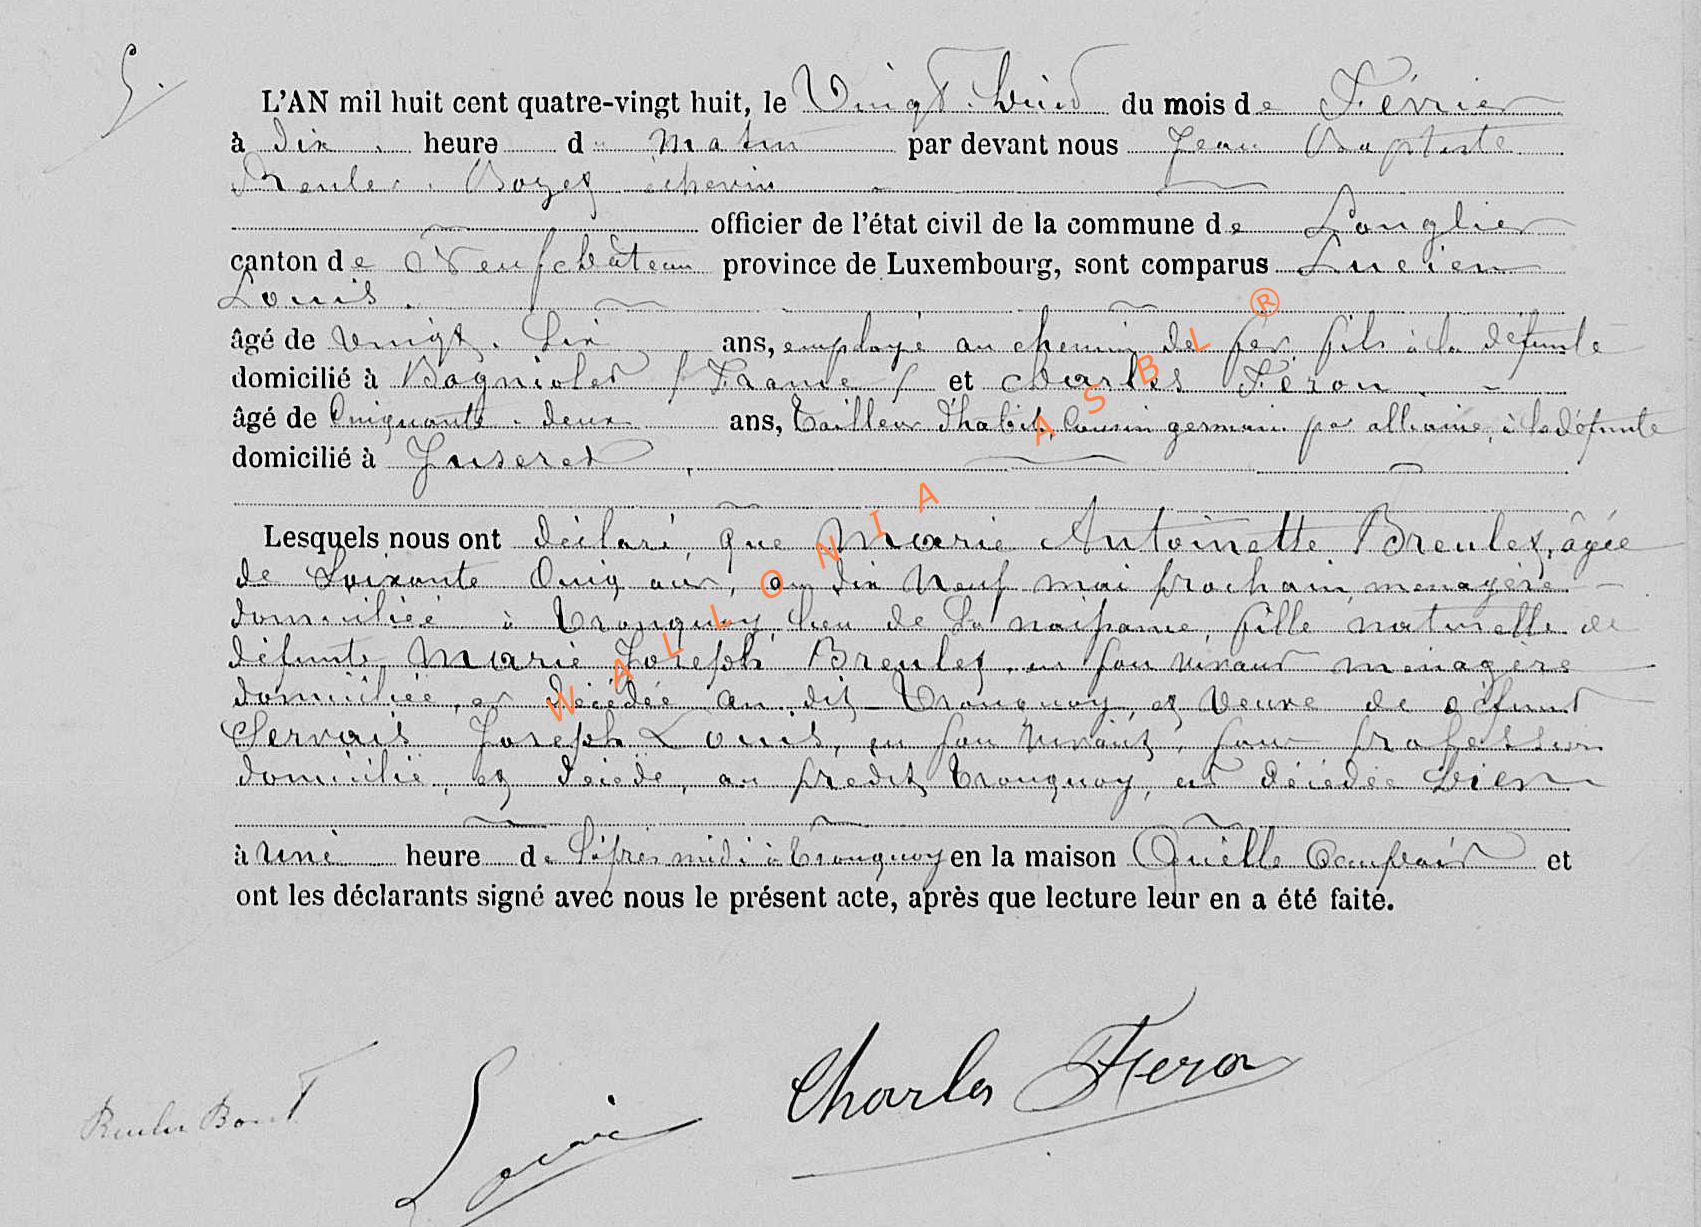 5.
L'AN mil huit cent quatre-vingt huit, le Vingt-huit du mois de Février
à dix heure du Matin par devant nous Jean Baptiste
échevin
officier de l'état civil de la commune de Longlier
canton de Neufchâteau province de Luxembourg, sont comparus Lucien
Louis.
âgé de Vingt-Six ans, employé au chemin de fer, fils à la défunte
domicilié à Bagniolet / France / et Charles Féron
âgé de Cinquante-deux ans, Tailleur d'habits, Cousin germain par alliance, à la défunte
domicilié à Juseret,
Lesquels nous ont déclaré, que Marie Antoinette Breulez, âgée
de Soixante Cinq ans, au dix Neuf mai prochain, menagère
domiciliée à Tronquoy, lieu de Sa naissance, fille naturelle de
défunte Marie Joseph Breulez en son vivant ménagère
domiciliée, et décédée au dit Tronquoy, et Veuve de défunt
Servais Joseph Louis, en son vivant, sans profession
domicilié, et décédé, au prédit Tronquoy, est décédée hier
à une heure de l'après midi à Tronquoy en la maison Qu'elle Occupait et
ont les déclarants signé avec nous le présent acte, après que lecture leur en a été faite.
Charles Feron
Louis
WALLONIA ASBL ®